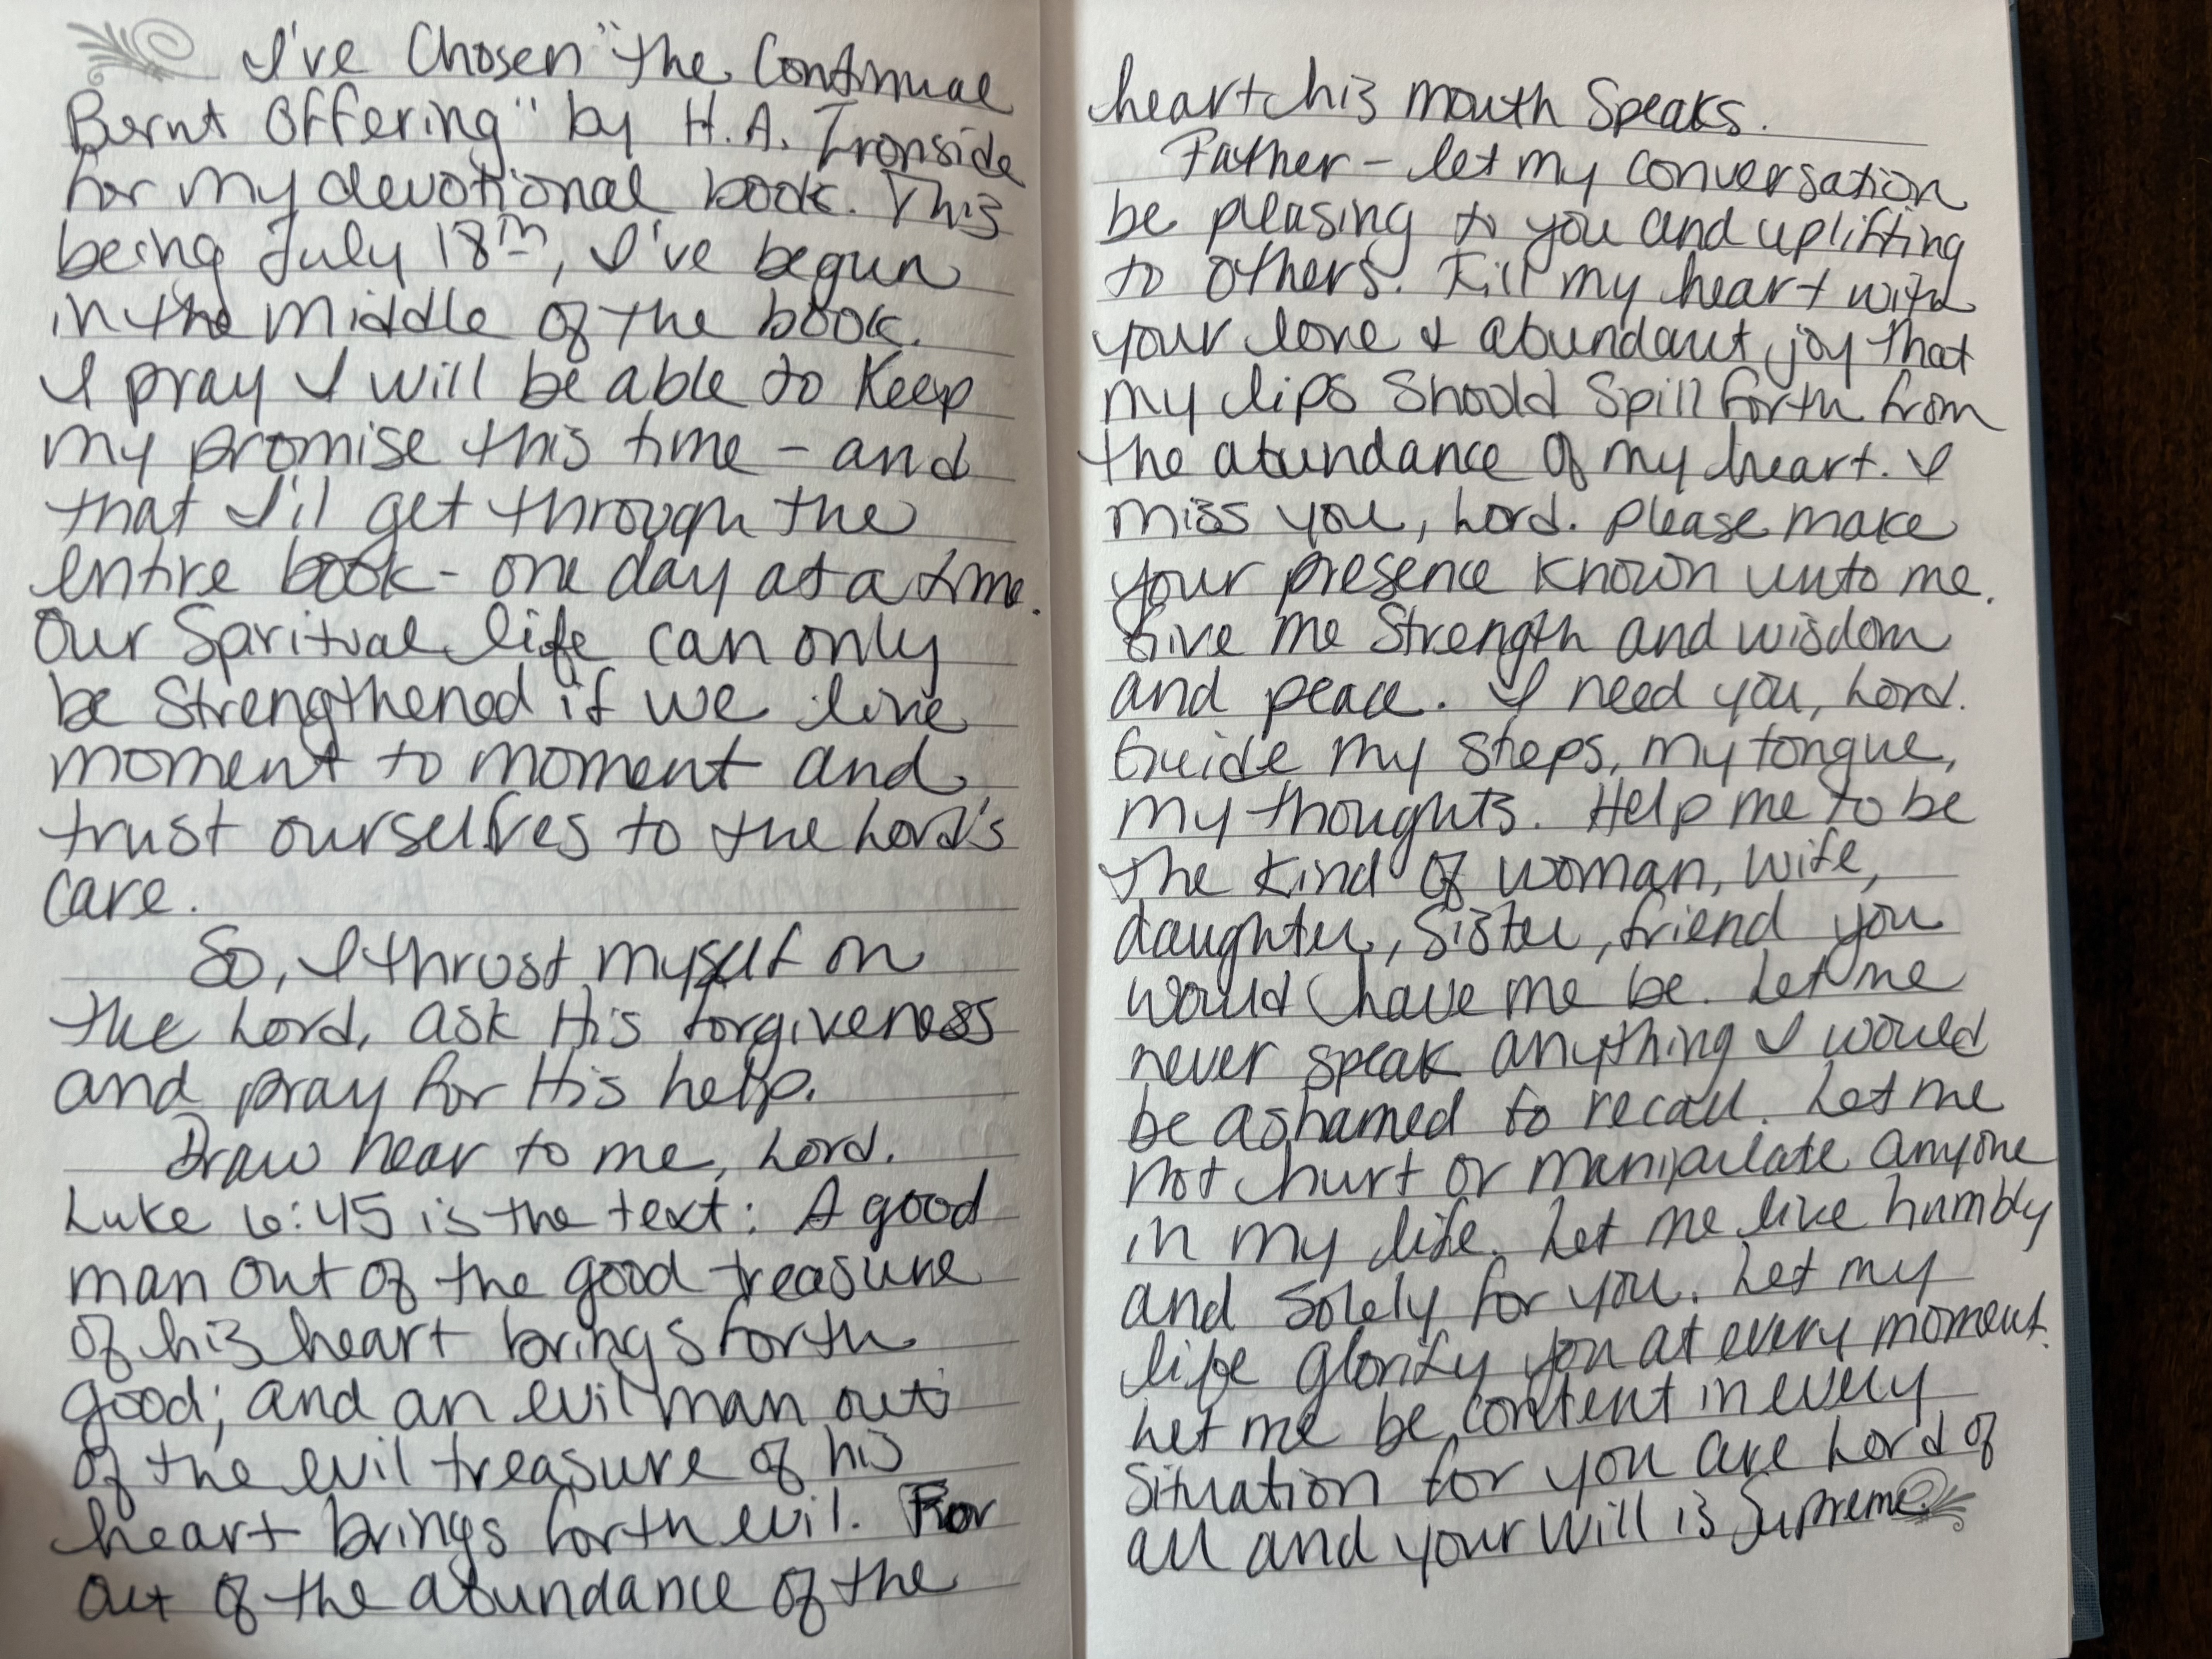 I've Chosen "the Continual
Burnt Offering" by H.A. Ironside
for my devotional book. This
being July 18th, I've begun
in the middle of the book.
I pray I will be able to keep
my promise this time – and
that I'll get through the
entire book - one day at a time.
Our Spiritual life can only
be Strengthened if we live
moment to moment and
trust ourselves to the Lord's
care.
So, I thrust myself on
the Lord, ask His forgiveness
and pray for His help.
Draw near to me, Lord.
Luke 6:45 is the text: A good
man out of the good treasure
of his heart brings forth
good; and an evil man out
of the evil treasure of his
heart brings forth evil. For
out of the abundance of the
heart his mouth Speaks.
Father – let my conversation
be pleasing to you and uplifting
to others. Fill my heart with
your love & abundant joy that
my lips Should Spill forth from
the abundance of my heart. I
miss you, Lord. please make
your presence known unto me.
Give me Strength and wisdom
and peace. I need you, Lord.
Guide my Steps, my tongue,
my thoughts. Help me to be
the kind of woman, wife,
daughter, Sister, friend you
would have me be. Let me
never speak anything I would
be ashamed to recall. Let me
not hurt or manipulate anyone
in my life. Let me live humbly
and solely for you. Let my
life glorify you at every moment.
Let me be content in every
Situation for you are Lord of
all and your will is Supreme.